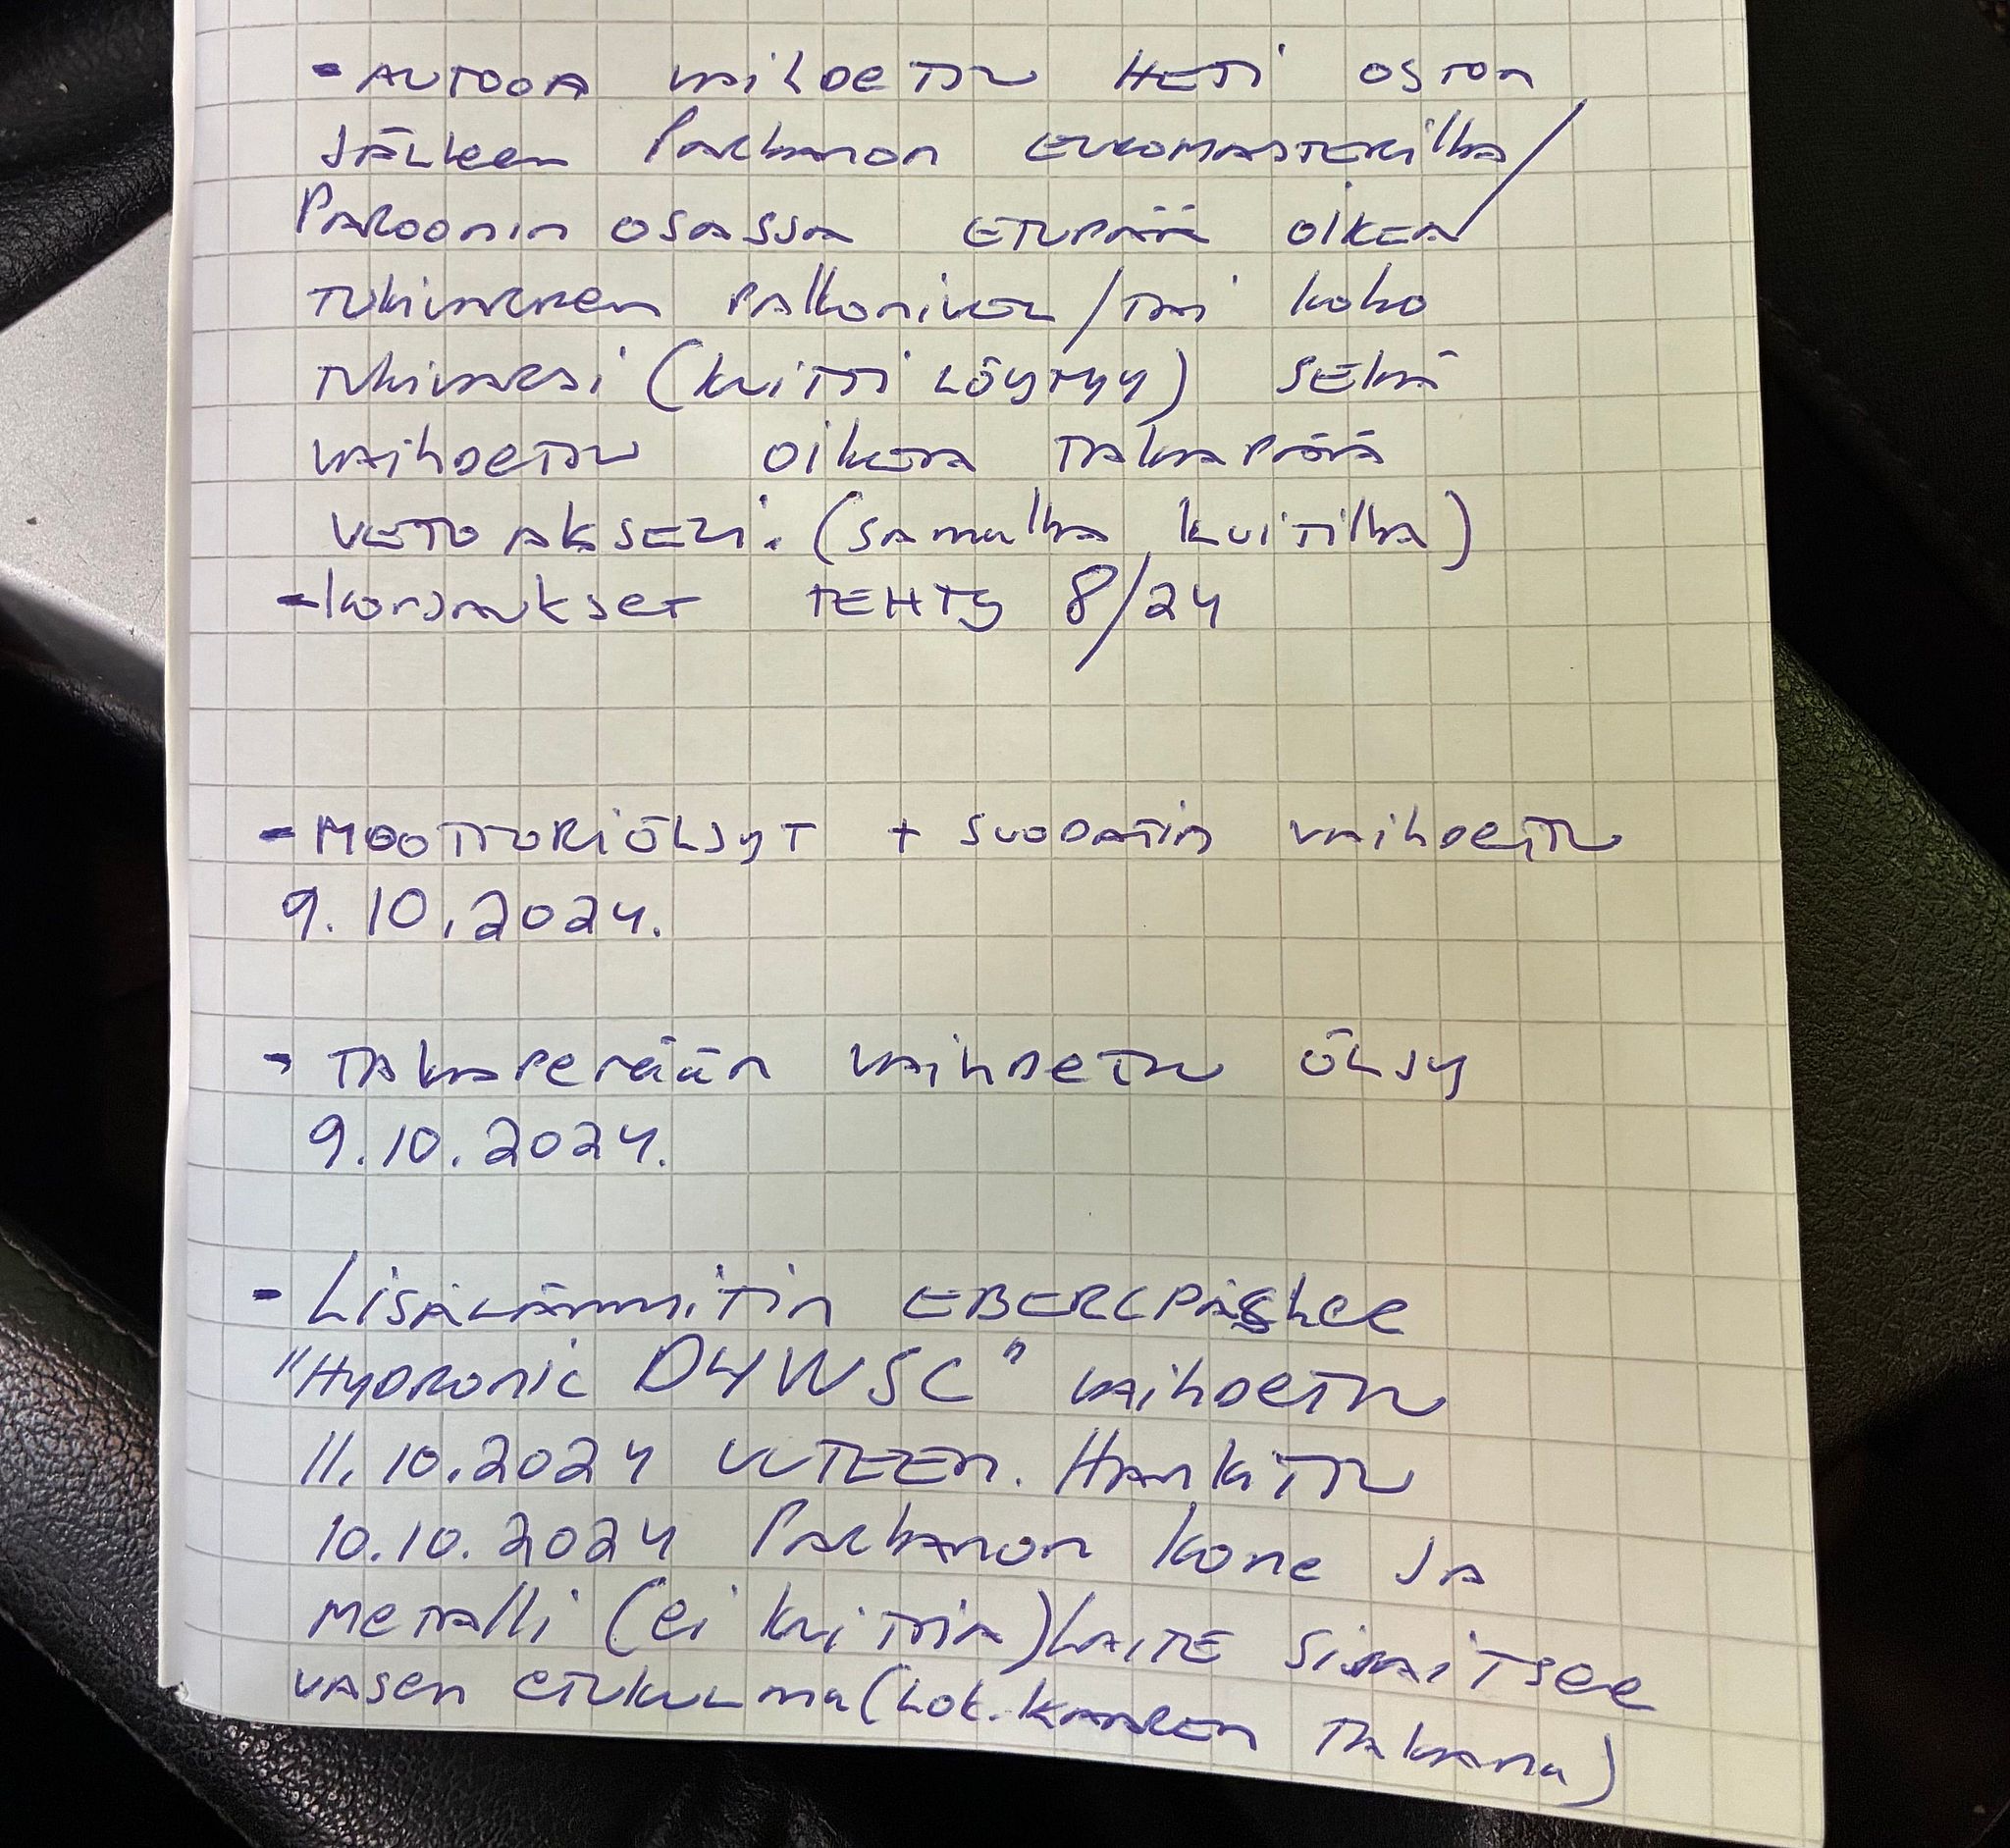 - AUTOON vaihdettu HETi oston
JÄLkeen Parkanon EUROMASTERilla/
Paroonin osassa ETUPÄÄ oikea/
Tukivarren pallonivel/tai koko
tukivarsi (kuitti LÖYTYY) SEKä
vaihdettu oikea Takapää
VETO AKSELi. (samalla kuitilla)
- korjaukset TEHTY 8/24
- MOOTTORiÖLJYT + suodatin vaihdettu
9.10.2024.
- Takaperään vaihdettu ÖLJY
9.10.2024.
- Lisälämmitin EBERSPÄSHER
"Hydronic D4WSC" vaihdettu
11.10.2024 UUTEEN. Hankittu
10.10.2024 Parkanon Kone JA
Metalli (ei kuittia) LAITE Sijaitsee
vasen etukulma (Lok.kaaren Takana)